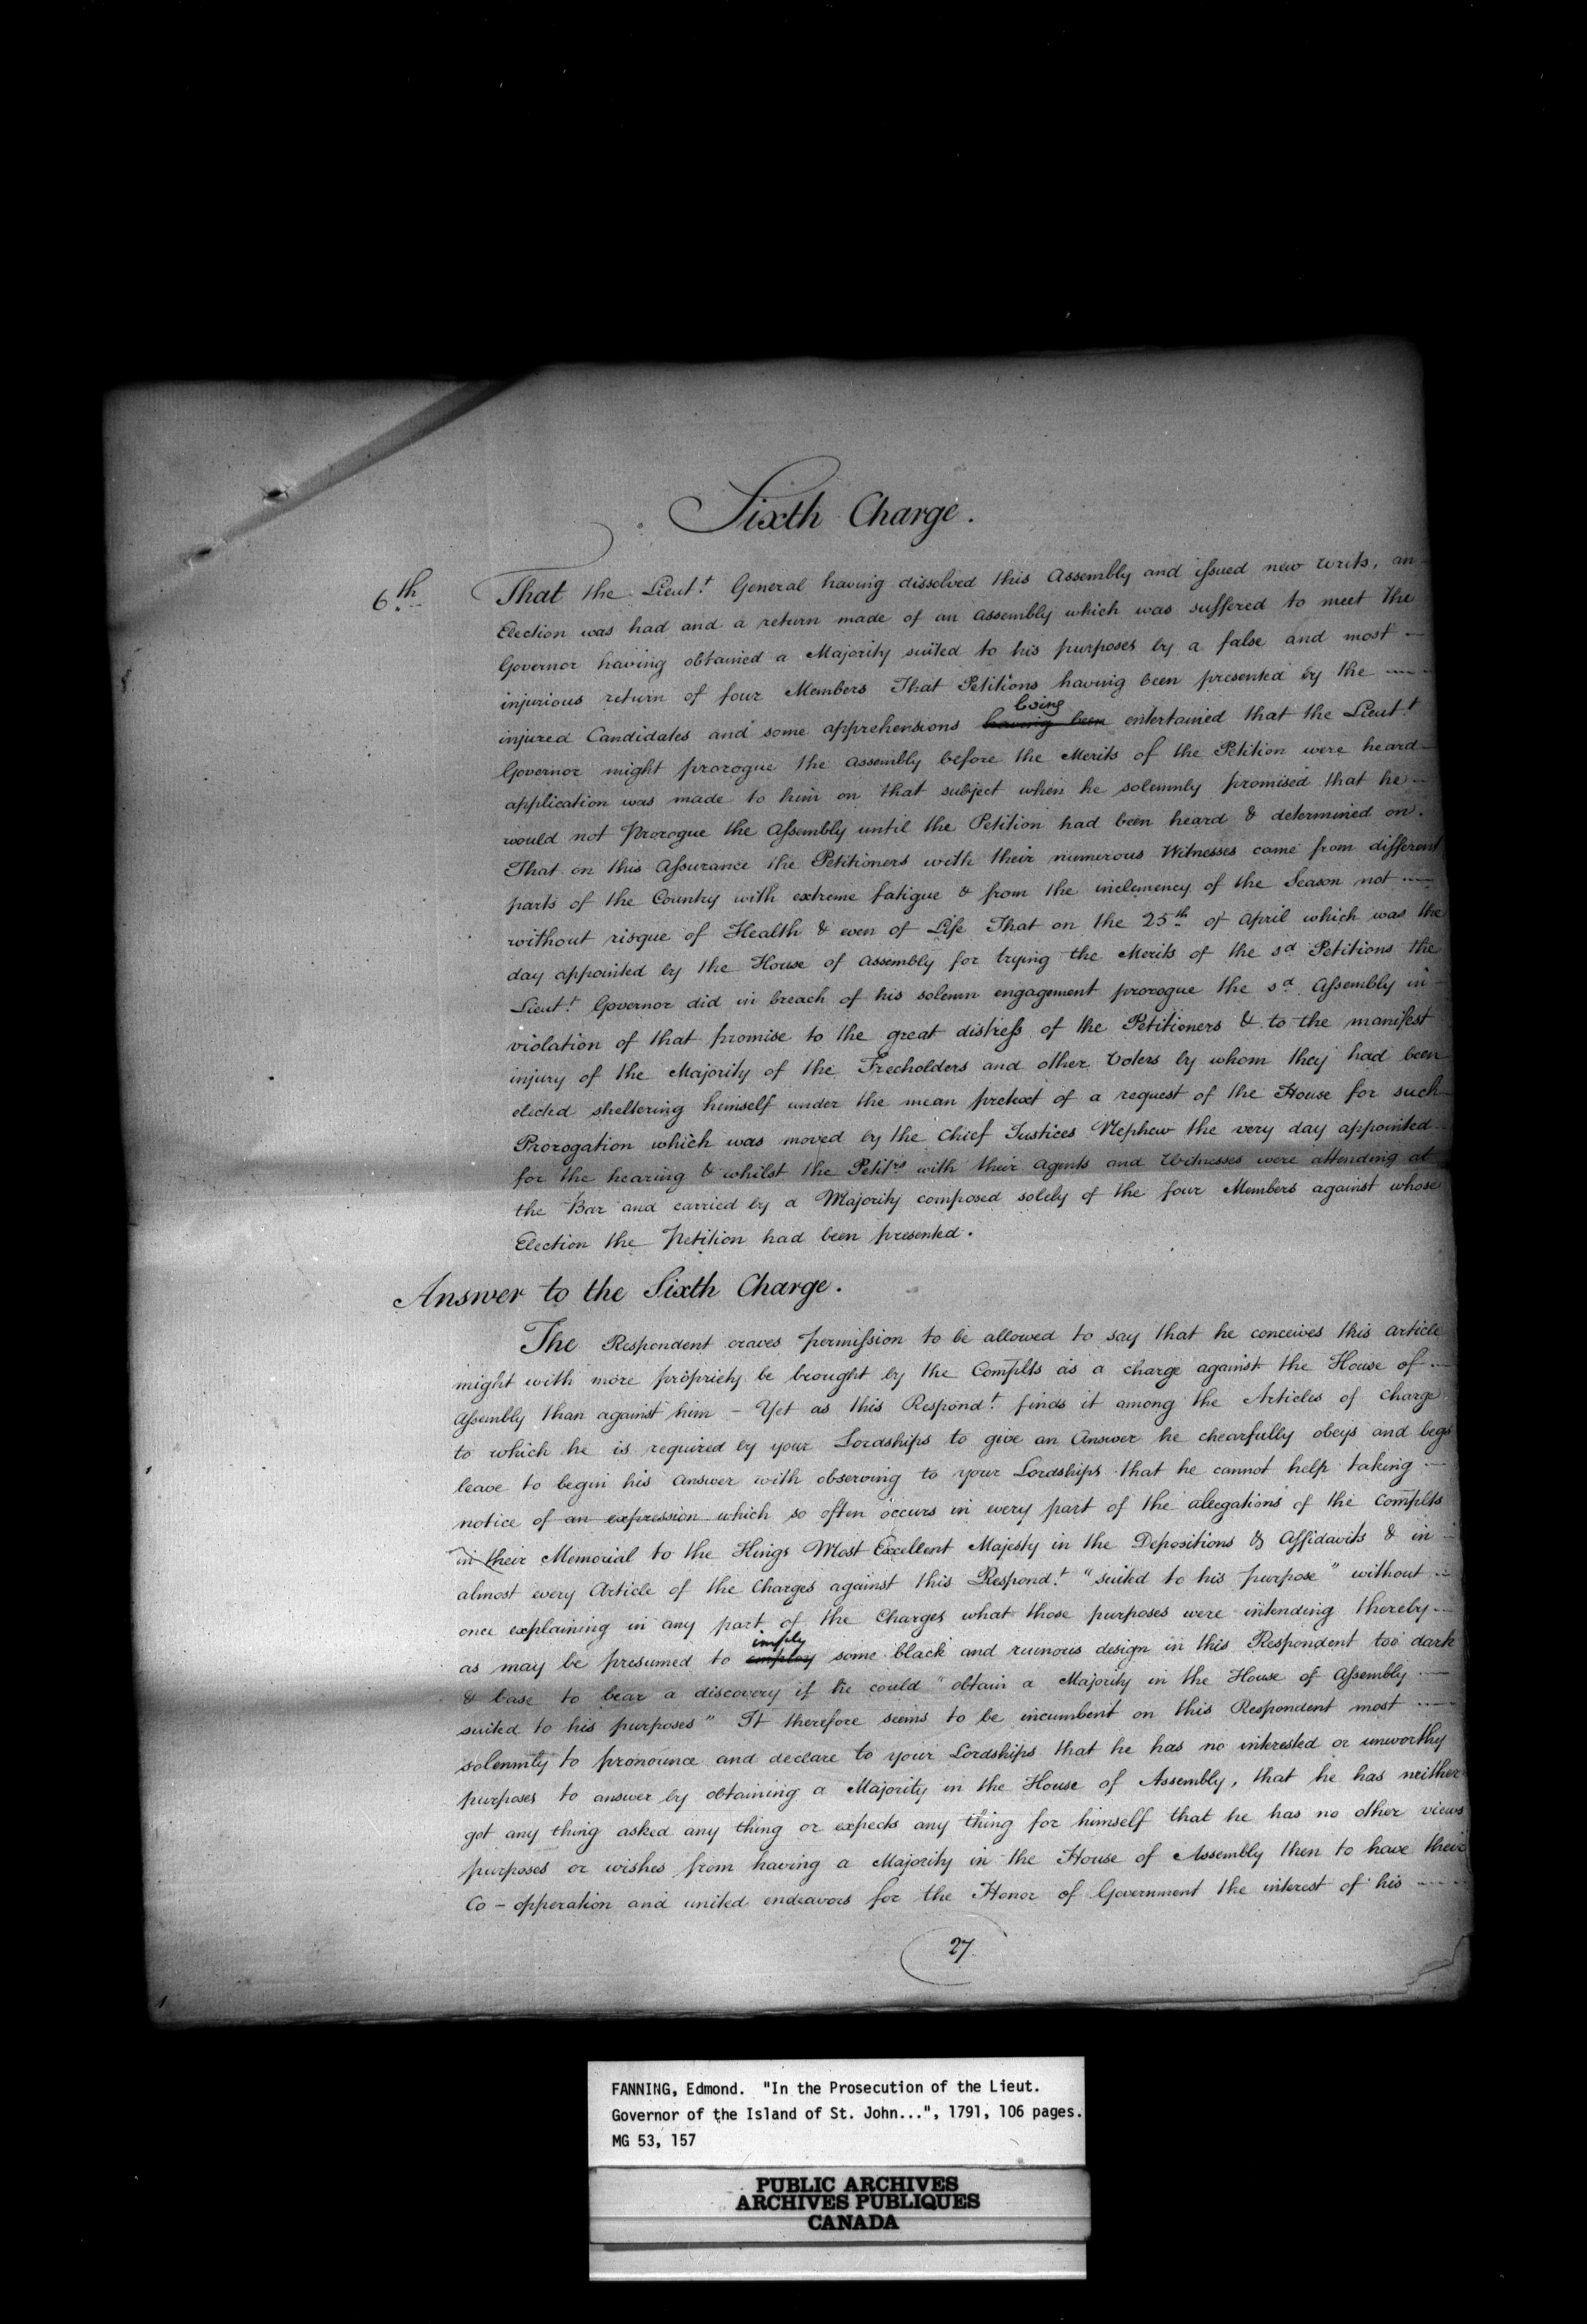 Sixth Charge.
6th That the Lieut.t General having dissolved this Assembly and issued new writs, an
Election was had and a return made of an assembly which was suffered to meet the
Governor having obtained a Majority suited to his purposes by a false and most
injurious return of four Members That Petitions having been presented by the
being
injured Candidates and some apprehensions having been entertained that the Lieut.t
Governor might prorogue the assembly before the Merits of the Petition were heard
application was made to him on that subject when he solemnly promised that he
would not Prorogue the Assembly until the Petition had been heard & determined on.
That on this Assurance the Petitioners with their numerous Witnesses came from different
parts of the Country with extreme fatigue & from the inclemency of the Season not
without risque of Health & even of Life That on the 25th of April which was the
day appointed by the House of Assembly for trying the Merits of the sd Petitions the
Lieut.t Governor did in breach of his solemn engagement prorogue the sd Assembly in
violation of that promise to the great distress of the Petitioners & to the manifest
injury of the Majority of the Freeholders and other Voters by whom they had been
elected sheltering himself under the mean pretext of a request of the House for such
Prorogation which was moved by the Chief Justices Nephew the very day appointed
for the hearing & whilst the Petitrs with their agents and Witnesses were attending at
the Bar and carried by a Majority composed solely of the four Members against whose
Election the Petition had been presented.
Answer to the Sixth Charge.
The Respondent craves permission to be allowed to say that he conceives this article
might with more propriety be brought by the Complts as a charge against the House of
Assembly than against him - Yet as this Respond.t finds it among the Articles of charge
to which he is required by your Lordships to give an Answer he chearfully obeys and begs
leave to begin his answer with observing to your Lordships that he cannot help taking
notice of an expression which so often occurs in every part of the alegations of the Complts
in their Memorial to the Kings Most Excellent Majesty in the Depositions & Affidavits & in
almost every Article of the Charges against this Respond.t "suited to his purpose" without
once explaining in any part of the Charges what those purposes were intending thereby
imply
as may be presumed to employ some black and ruinous design in this Respondent too dark
& base to bear a discovery if he could "obtain a Majority in the House of Assembly
suited to his purposes" It therefore seems to be incumbent on this Respondent most
solemnly to pronounce and declare to your Lordships that he has no interested or unworthy
purposes to answer by obtaining a Majority in the House of Assembly, that he has neither
got any thing asked any thing or expects any thing for himself that he has no other views
purposes or wishes from having a Majority in the House of Assembly then to have their
Co-opperation and united endeavors for the Honor of Government the interest of his
27
FANNING, Edmond. "In the Prosecution of the Lieut.
Governor of the Island of St. John...", 1791, 106 pages.
MG 53, 157
PUBLIC ARCHIVES
ARCHIVES PUBLIQUES
CANADA